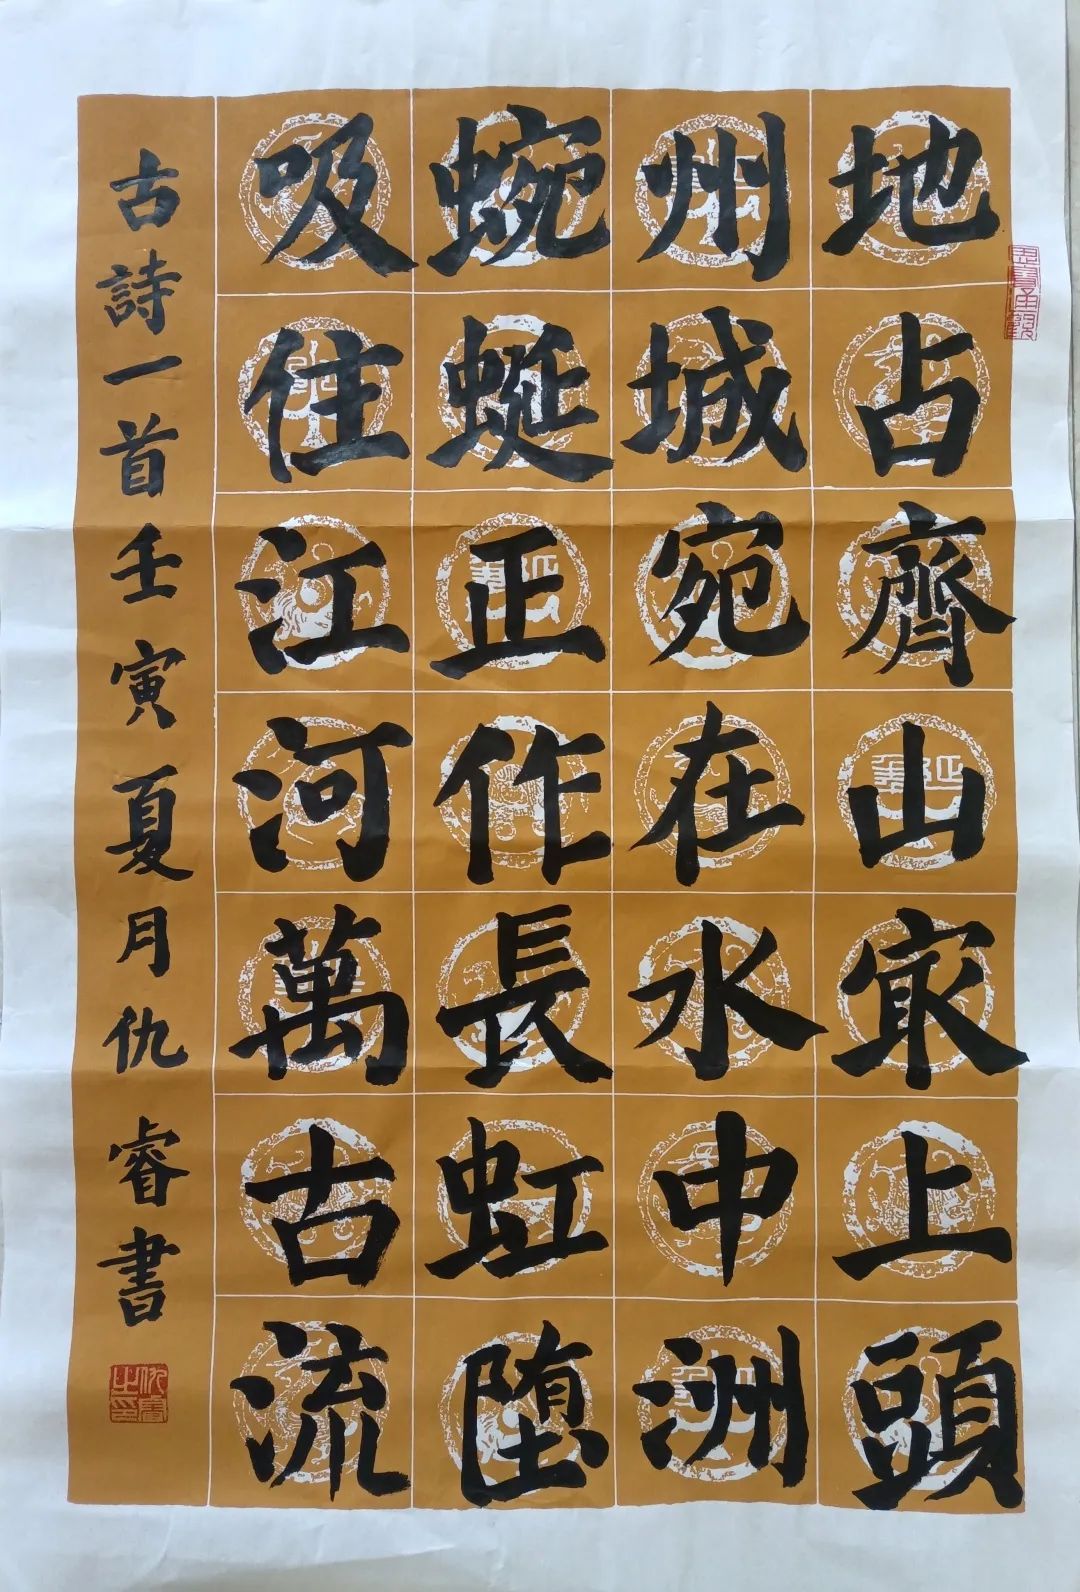 地占齊山冣上頭
州城宛在水中洲
蜿蜒正作長虹堕
吸住江河萬古流
古詩一首壬寅夏月仇睿書
仇睿之印